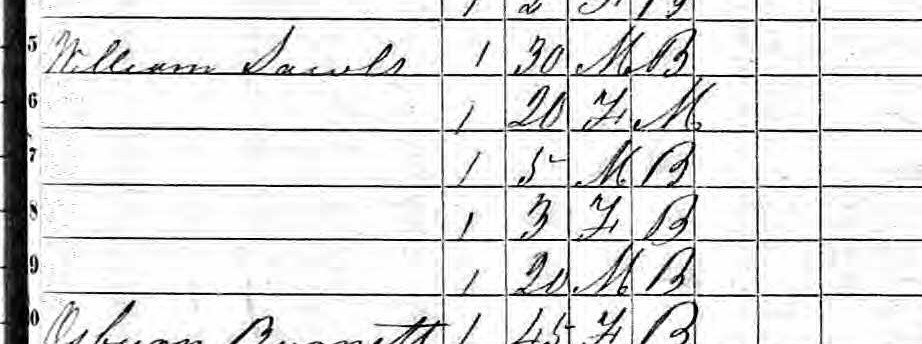 1 2 F B
5 William Sawls 1 30 M B
6 1 20 F M
7 1 5 M B
8 1 3 F B
9 1 20 M B
0 Osburn Burnett 1 45 F B